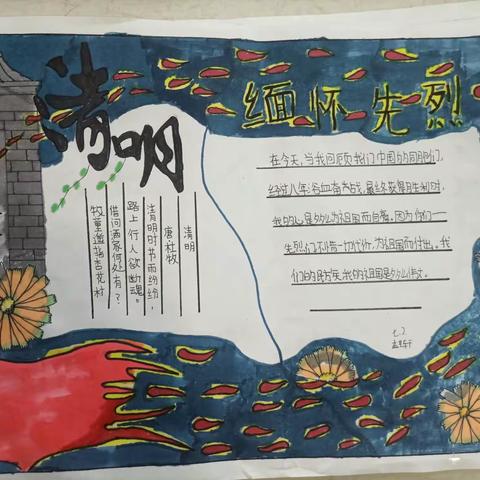 清明
清明
唐杜牧
清明时节雨纷纷,
路上行人欲断魂。
借问酒家何处有?
牧童遥指杏花村
缅怀先烈
在今天,当我回顾我们中国的同胞们,
经过八年浴血奋战,最终获得胜利时,
我的心是多么为祖国而自豪,因为他们一
先烈们不惜一切代价,为祖国而付出。我
们的民族,我的祖国是多么伟大。
七.2